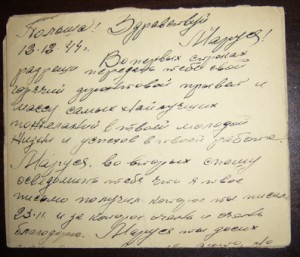 Польша! Здравствуй
13.12.44г. Маруся!
Во первых строках
разреши передать тебе свой
горячий дружеский привет и
массу самых наилучших
пожеланий в твоей молодой
жизни и успехов в твоей работе.
Маруся, во вторых спешу
осведомить тебе что я твое
письмо получил которое ты писала
23.11. и за которое очень и очень
благодарю. Маруся ты